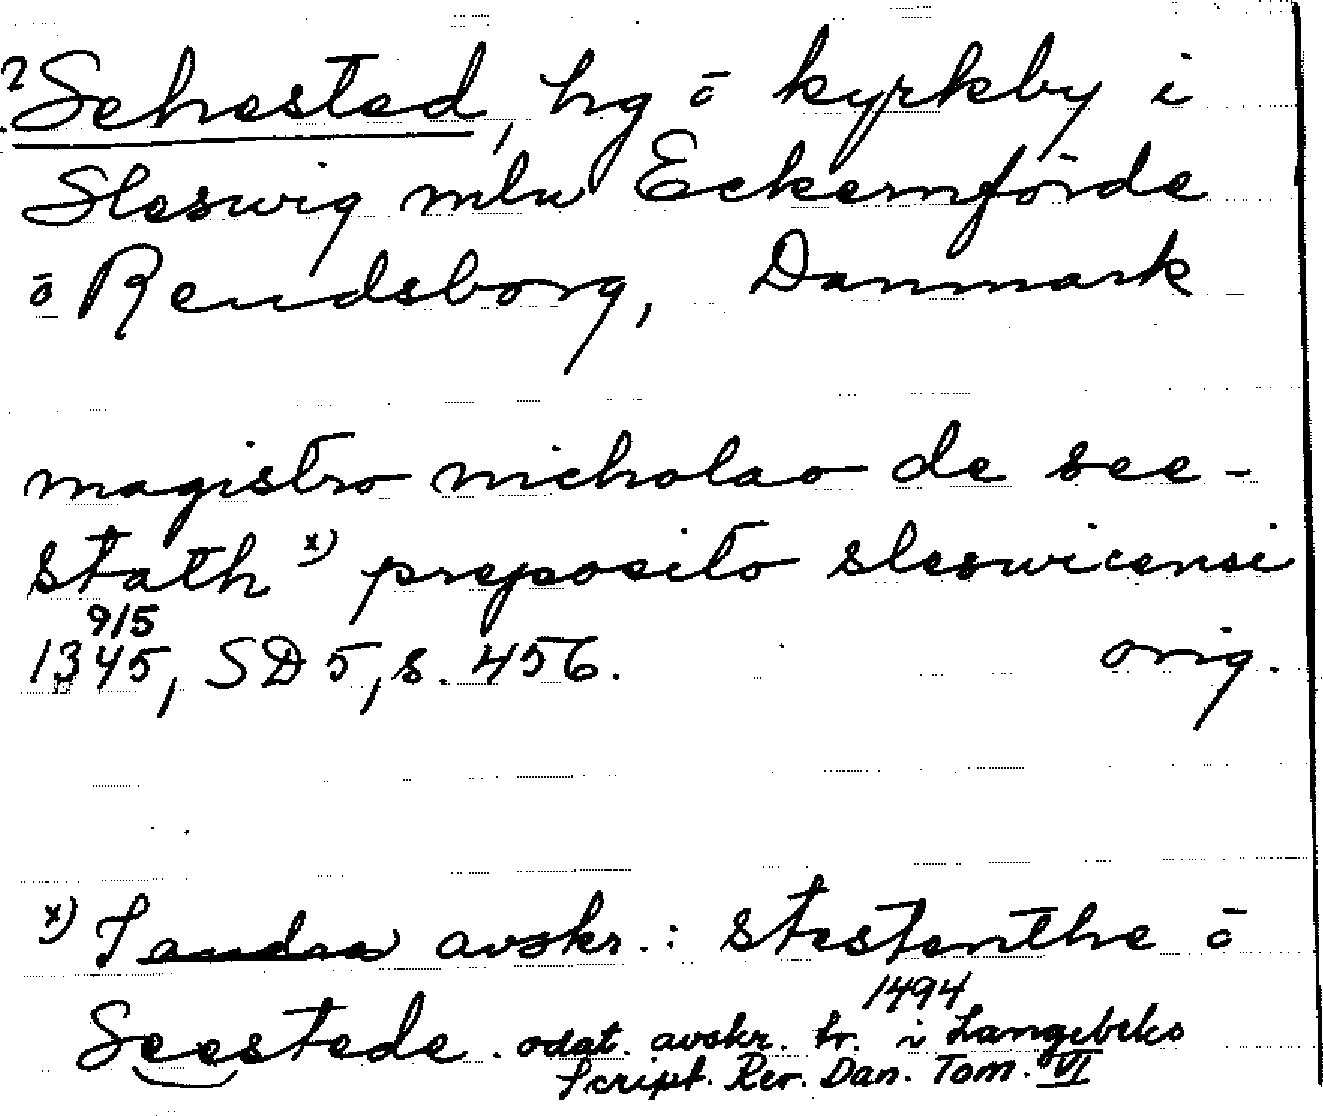 ? Sehested, hg ō kyrkby i
Sleswig mln Eckernförde
ō Rendsborg, Danmark
magistro nicholao de see-
stath x) preposito sleswicensi
9/5
1345, SD 5, s. 456. orig.
x) I andra avskr.: stestenthe ō
1494
Seestede. odat. avskr. tr. i Langebeks
Script. Rer. Dan. Tom. VI